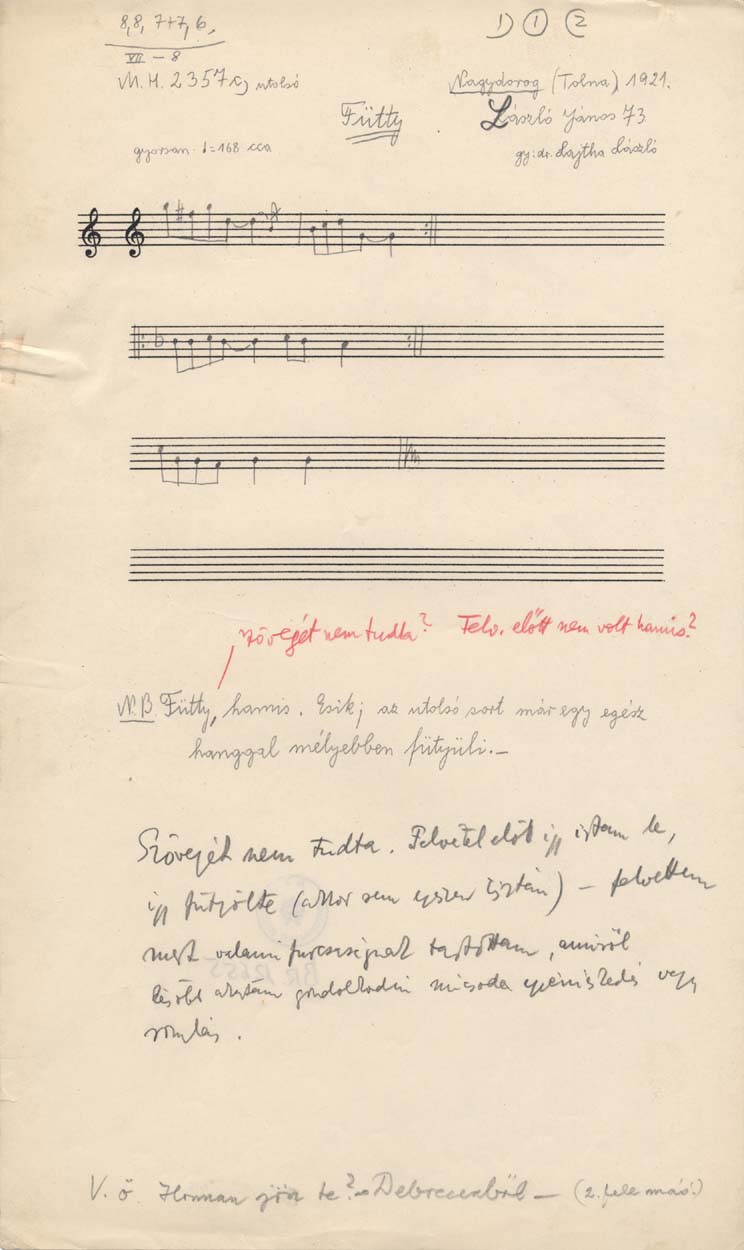 8, 8, 7+7, 6,
1) ① 2
VII – 8
M. H. 2357c, utolsó
Nagydorog (Tolna) 1921.
Fütty
László János 73
gyorsan ♩=168 cca
gy: dr. Lajtha László
szövegét nem tudta? Felv. előtt nem volt hamis?
N.B. Fütty, hamis. Esik; az utolsó sort már egy egész
hanggal mélyebben fütyüli.–
Szövegét nem tudta. Felvétel előtt így írtam le,
így fütyölte (akkor sem egészen tisztán) – felvettem
mert valami furcsaságnak tartottam, amiről
később akartam gondolkodni micsoda
romlás.
V. ö. Honnan jön te? – Debrecenből – (2. fele más!)